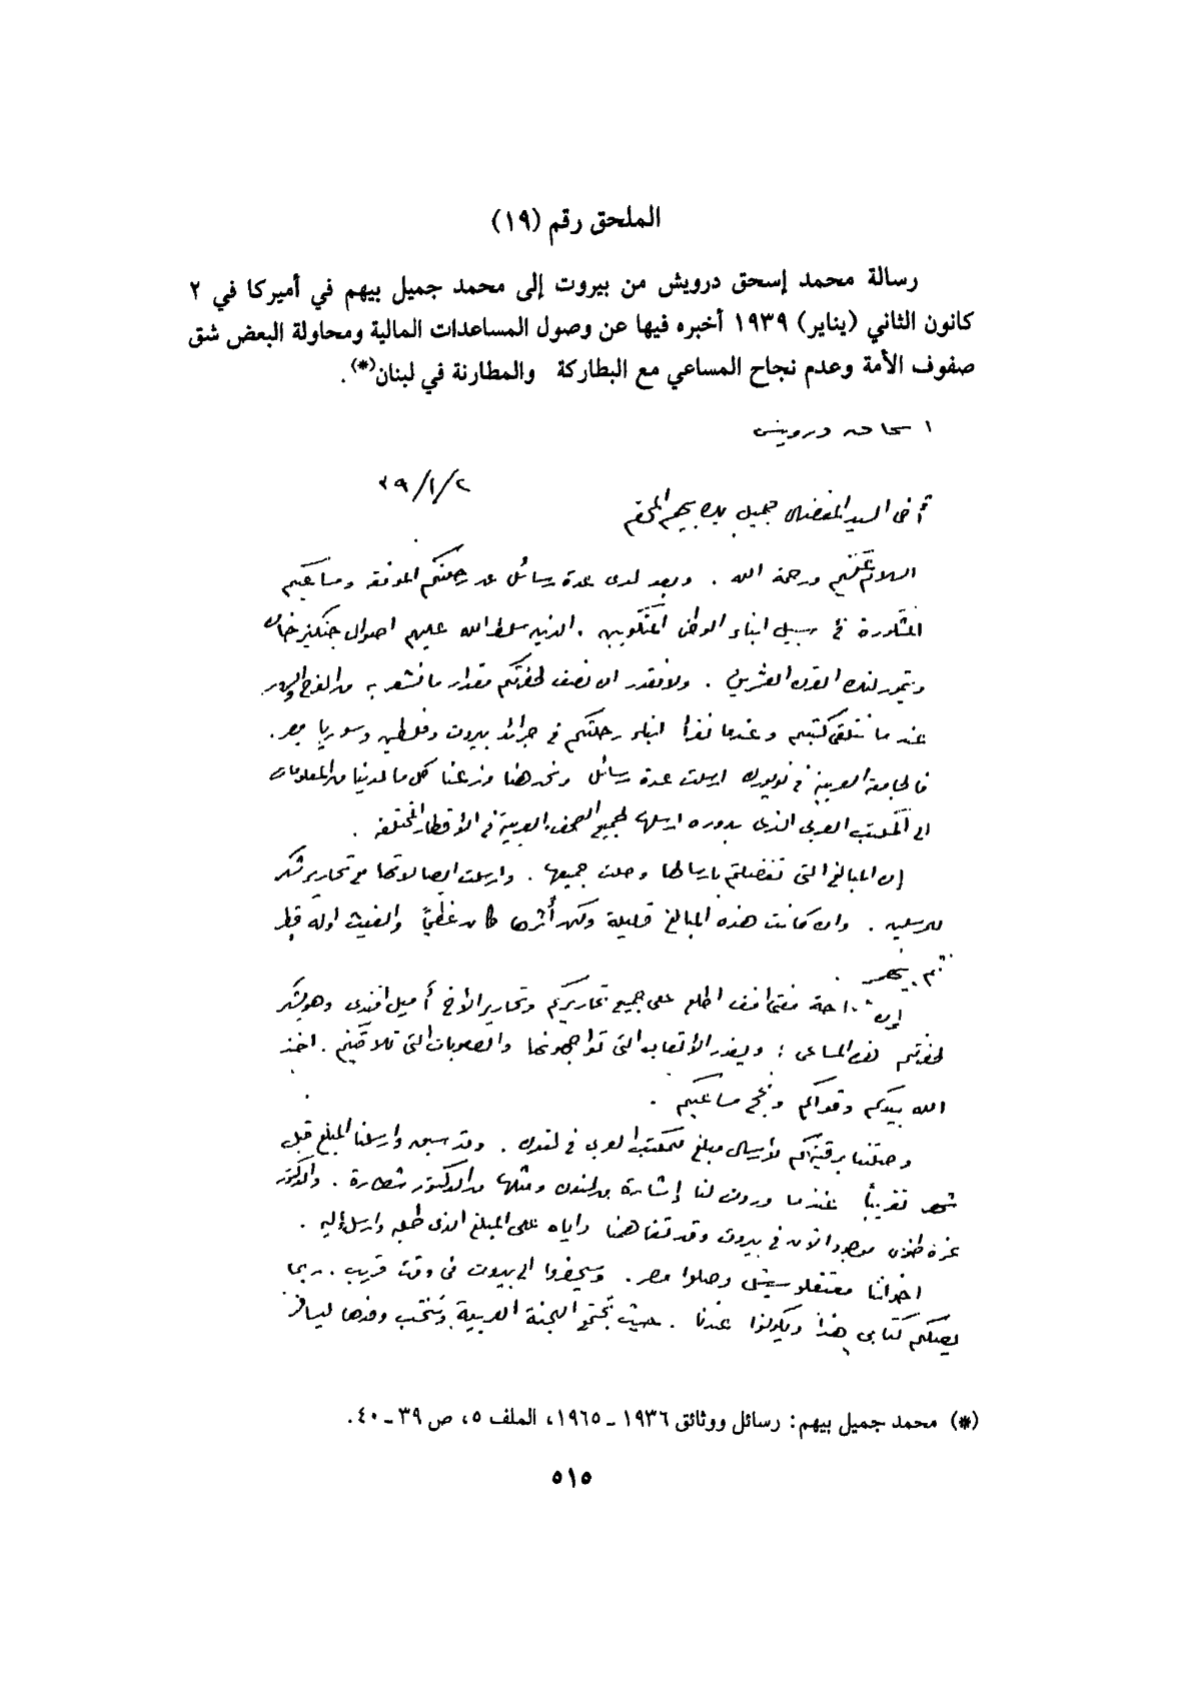 الملحق رقم (١٩)
رسالة محمد إسحق درويش من بيروت إلى محمد جميل بيهم في أميركا في ٢
كانون الثاني (يناير) ١٩٣٩ أخبره فيها عن وصول المساعدات المالية ومحاولة البعض شق
صفوف الأمة وعدم نجاح المساعي مع البطاركة والمطارنة في لبنان(*).
اسحاق درويش
٣٩/١/٢
أخي السيد المفضال جميل بك بيهم المحترم
السلام عليكم ورحمة الله . وبعد لدى عدة رسائل عن رحلتكم الموفقة ومساعيكم
المشكورة في سبيل ابناء الوطن المنكوبين . الذين سلط الله عليهم اهوال جنكيز خان
وتيمورلنك القرن العشرين . ولا نقدر ان نصف لحضرتكم مقدار ما نشعر به من الفرح والسرور
عندما نتلقى كتبكم وعندما نقرأ انباء رحلتكم في جرائد بيروت وفلسطين وسوريا ومصر .
فالجامعة العربية في نويورك ارسلت عدة رسائل ونحن هنا وزعنا كل ما لدينا من المعلومات
الى المكتب العربي الذي بدوره ارسلها لجميع الصحف العربية في الأقطار المختلفة .
إن المبالغ التي تفضلتم بارسالها وصلت جميعها . وارسلت ايصالاتها مع تحارير شكر
للمرسلين . وان كانت هذه المبالغ قليلة ولكن أثرها كان عظيماً والغيث اوله قطر
ثم ينهمر .
إن سماحة مفتي افندي اطلع على جميع تحاريركم وتحارير الأخ أميل افندي وهو يشكر
لحضرتكم هذه المساعي ؛ ويقدر الأتعاب التي تواجهونها والصعوبات التي تلاقيكم . اخذ
الله بيدكم وقواكم ونجح مساعيكم .
وصلتنا برقيتكم لأرسال مبلغ للمكتب العربي في لندن . وقد سبق وارسلنا المبلغ قبل
شهر تقريباً عندما وردت لنا إشارة من لندن ومثلها من الدكتور شطارة . والدكتور
عزت طنوس موجود الآن في بيروت وقد تفاهمنا واياه على المبلغ الذي طلبه وارسل إليه .
اخواننا معتقلو سيشل وصلوا مصر . وسيحضروا الى بيروت في وقت قريب . ربما
يصلكم كتابي هذا ويكونوا عندنا . حيث تجتمع اللجنة العربية وتنتخب وفدها ليسافر
(*) محمد جميل بيهم: رسائل ووثائق ١٩٣٦ ـ ١٩٦٥، الملف ٥، ص ٣٩ ـ ٤٠.
٥١٥